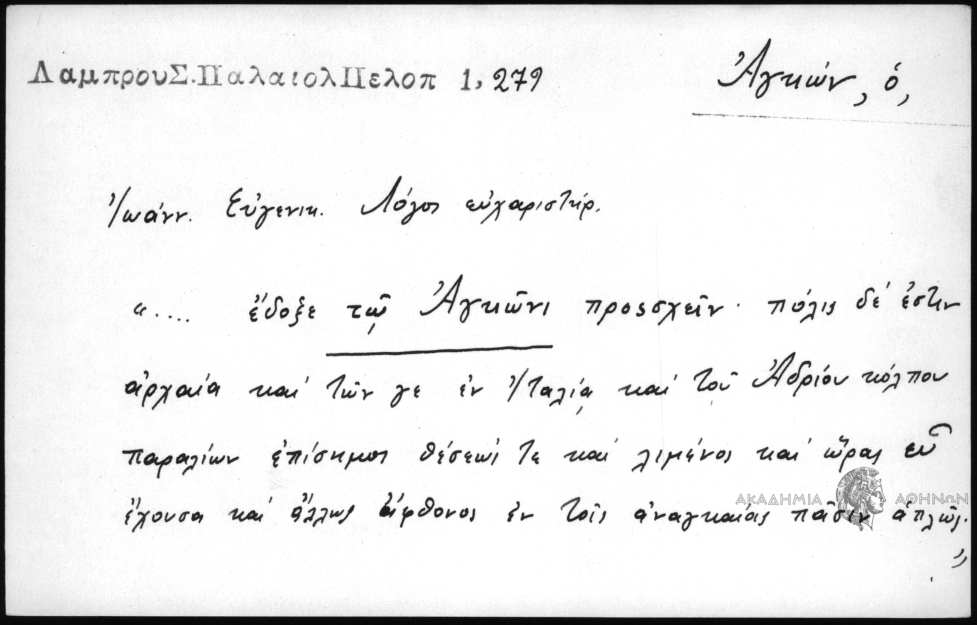 ΛαμπρουΣ.ΠαλαιολΠελοπ 1, 279
Ἀγκών, ὁ,
Ἰωάνν. Εὐγενικ. Λόγος εὐχαριστήρ.
«.... ἔδοξε τῷ Ἀγκῶνι προσσχεῖν· πόλις δέ ἐστιν
ἀρχαία καὶ τῶν γε ἐν Ἰταλίᾳ καὶ τοῦ Ἀδρίου κόλπου
παραλίων ἐπίσημος θέσεώς τε καὶ λιμένος καὶ ὥρας εὖ
ἔχουσα καὶ ἄλλως ἄφθονος ἐν τοῖς ἀναγκαίοις πᾶσιν ἁπλῶς.
»
ΑΚΑΔΗΜΙΑ ΑΘΗΝΩΝ